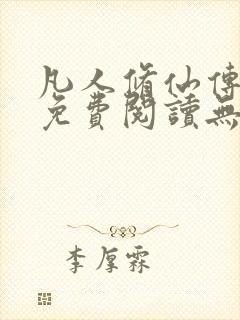 凡人脩仙傳
免費閱讀無
李厚霖